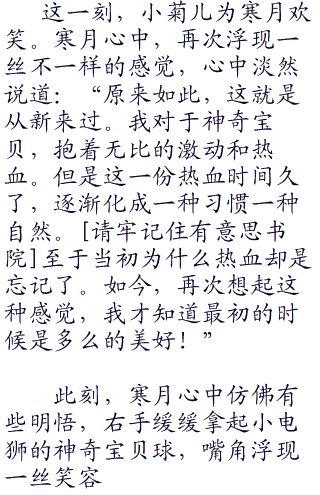 这一刻，小菊儿为寒月欢
笑。寒月心中，再次浮现一
丝不一样的感觉，心中淡然
说道：“原来如此，这就是
从新来过。我对于神奇宝
贝，抱着无比的激动和热
血。但是这一份热血时间久
了，逐渐化成一种习惯一种
自然。[请牢记住有意思书
院]至于当初为什么热血却是
忘记了。如今，再次想起这
种感觉，我才知道最初的时
候是多么的美好！”
此刻，寒月心中仿佛有
些明悟，右手缓缓拿起小电
狮的神奇宝贝球，嘴角浮现
一丝笑容